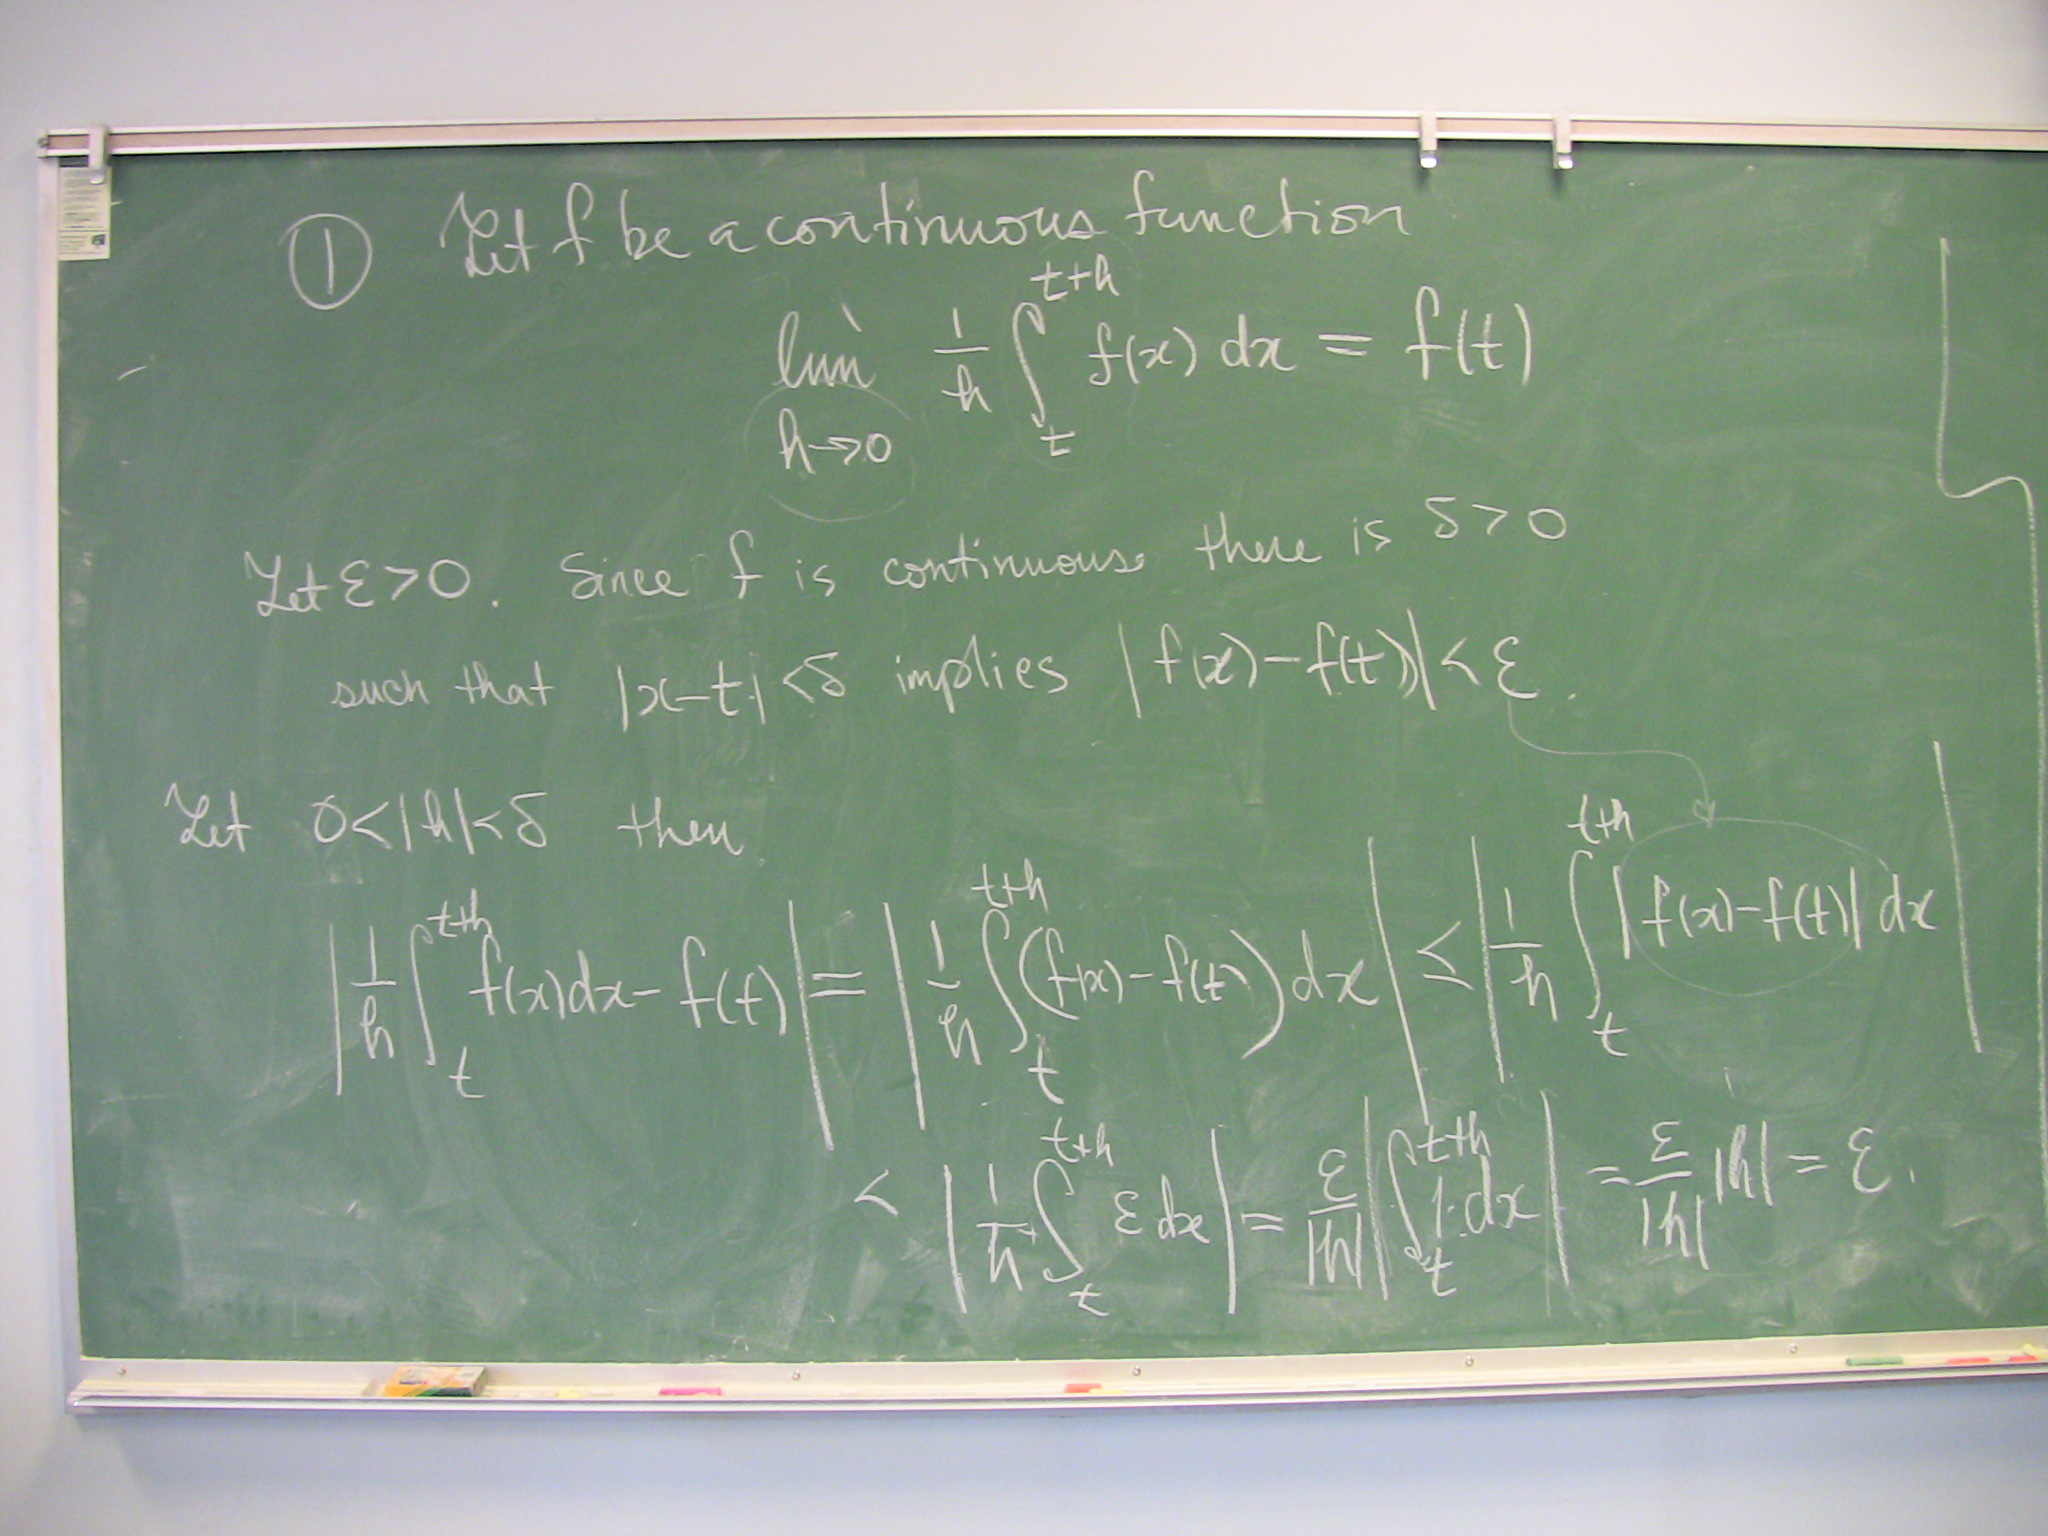 ① Let f be a continuous function
lim h→0 1/h ∫_t^{t+h} f(x) dx = f(t)
Let ε>0. Since f is continuous there is δ>0
such that |x-t|<δ implies |f(x)-f(t)|<ε.
Let 0<|h|<δ then
|1/h ∫_t^{t+h} f(x)dx - f(t)| = |1/h ∫_t^{t+h} (f(x)-f(t)) dx| ≤ |1/h ∫_t^{t+h} |f(x)-f(t)| dx|
< |1/h ∫_t^{t+h} ε dx| = ε/|h| |∫_t^{t+h} 1·dx| = ε/|h| |h| = ε.